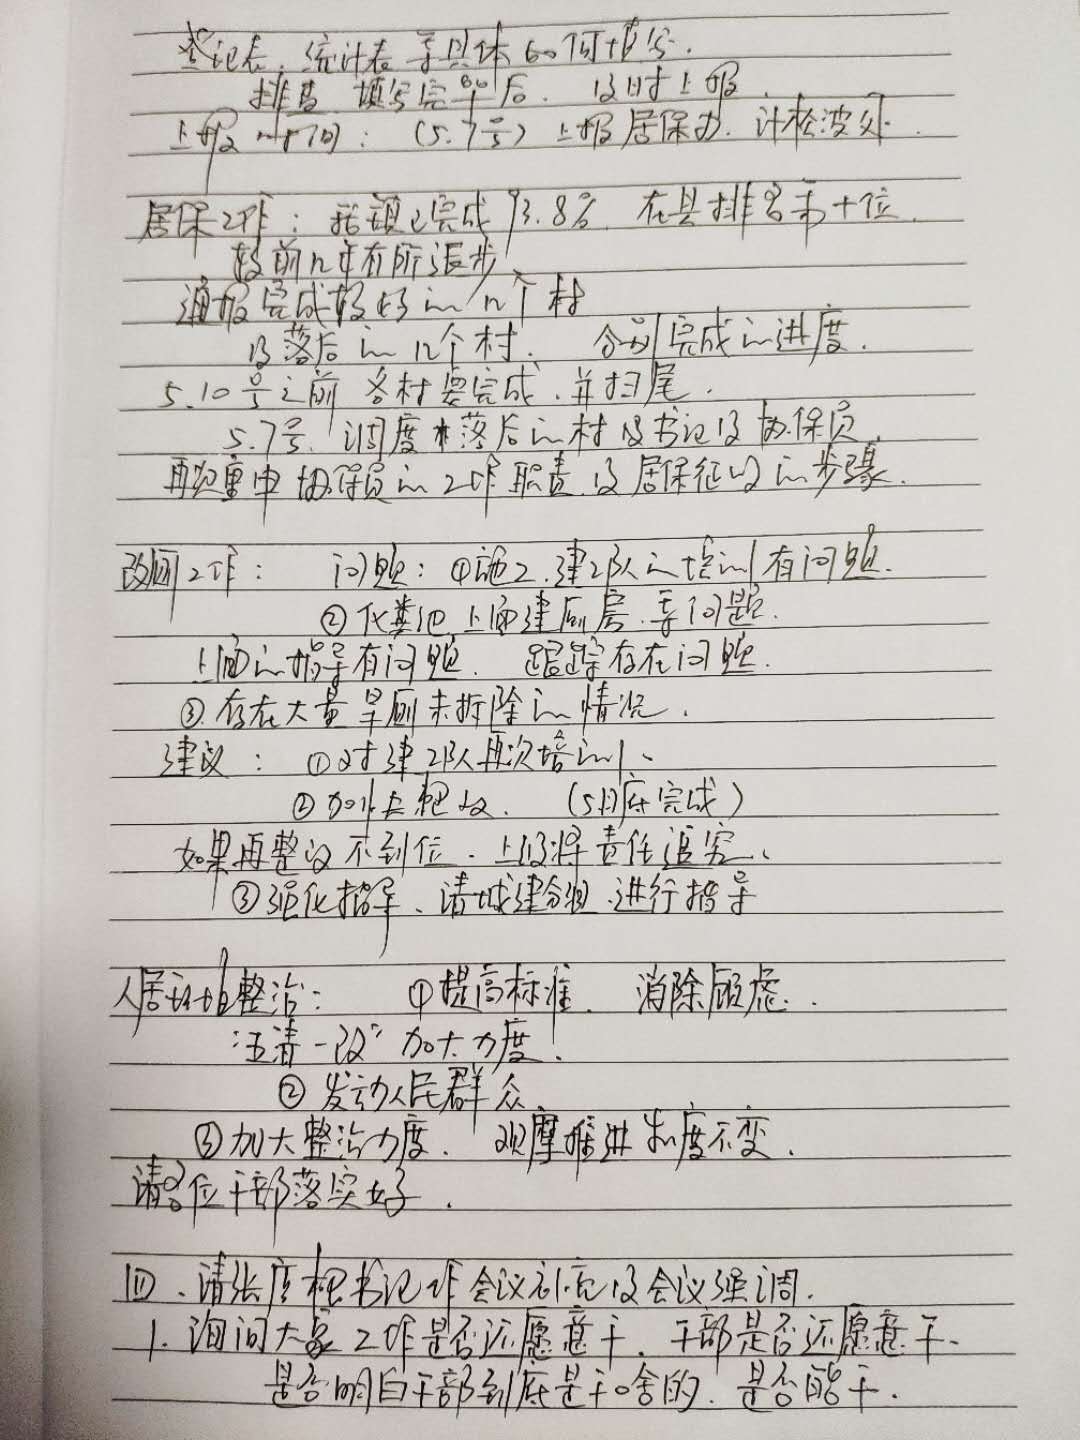 登记表、统计表等具体如何填写.
排查 填写完毕后. 及时上报.
上报时间: (5.7号) 上报居保办. 计松波处.
居保工作: 我镇已完成93.8%. 在县排名第十位.
较前几年有所进步.
通报完成较好的几个村
及落后的几个村. 分别完成的进度.
5.10号之前 各村要完成.并扫尾.
5.7号. 调度落后的村及书记及协保员.
再次重申协保员的工作职责.及居保征收的步骤.
改厕工作: 问题: ①施工.建工队的培训有问题.
②化粪池上面建厕房.等问题.
上面的指导有问题. 跟踪存在问题.
③.存在大量旱厕未拆除的情况.
建议: ①对建工队再次培训、
② 加大整改. (5月底完成)
如果再整改不到位.上级将责任追究.
③强化指导、请城建分组.进行指导
人居环境整治: ①提高标准. 消除顾虑..
“五清一改”加大力度!
② 发动人民群众.
③加大整治力度. 观摩推进制度不变.
请各位干部落实好.
四、请张书记作会议补充及会议强调.
1. 询问大家工作是否还愿意干.干部是否还愿意干.
是否明白干部到底是干啥的.是否能干.